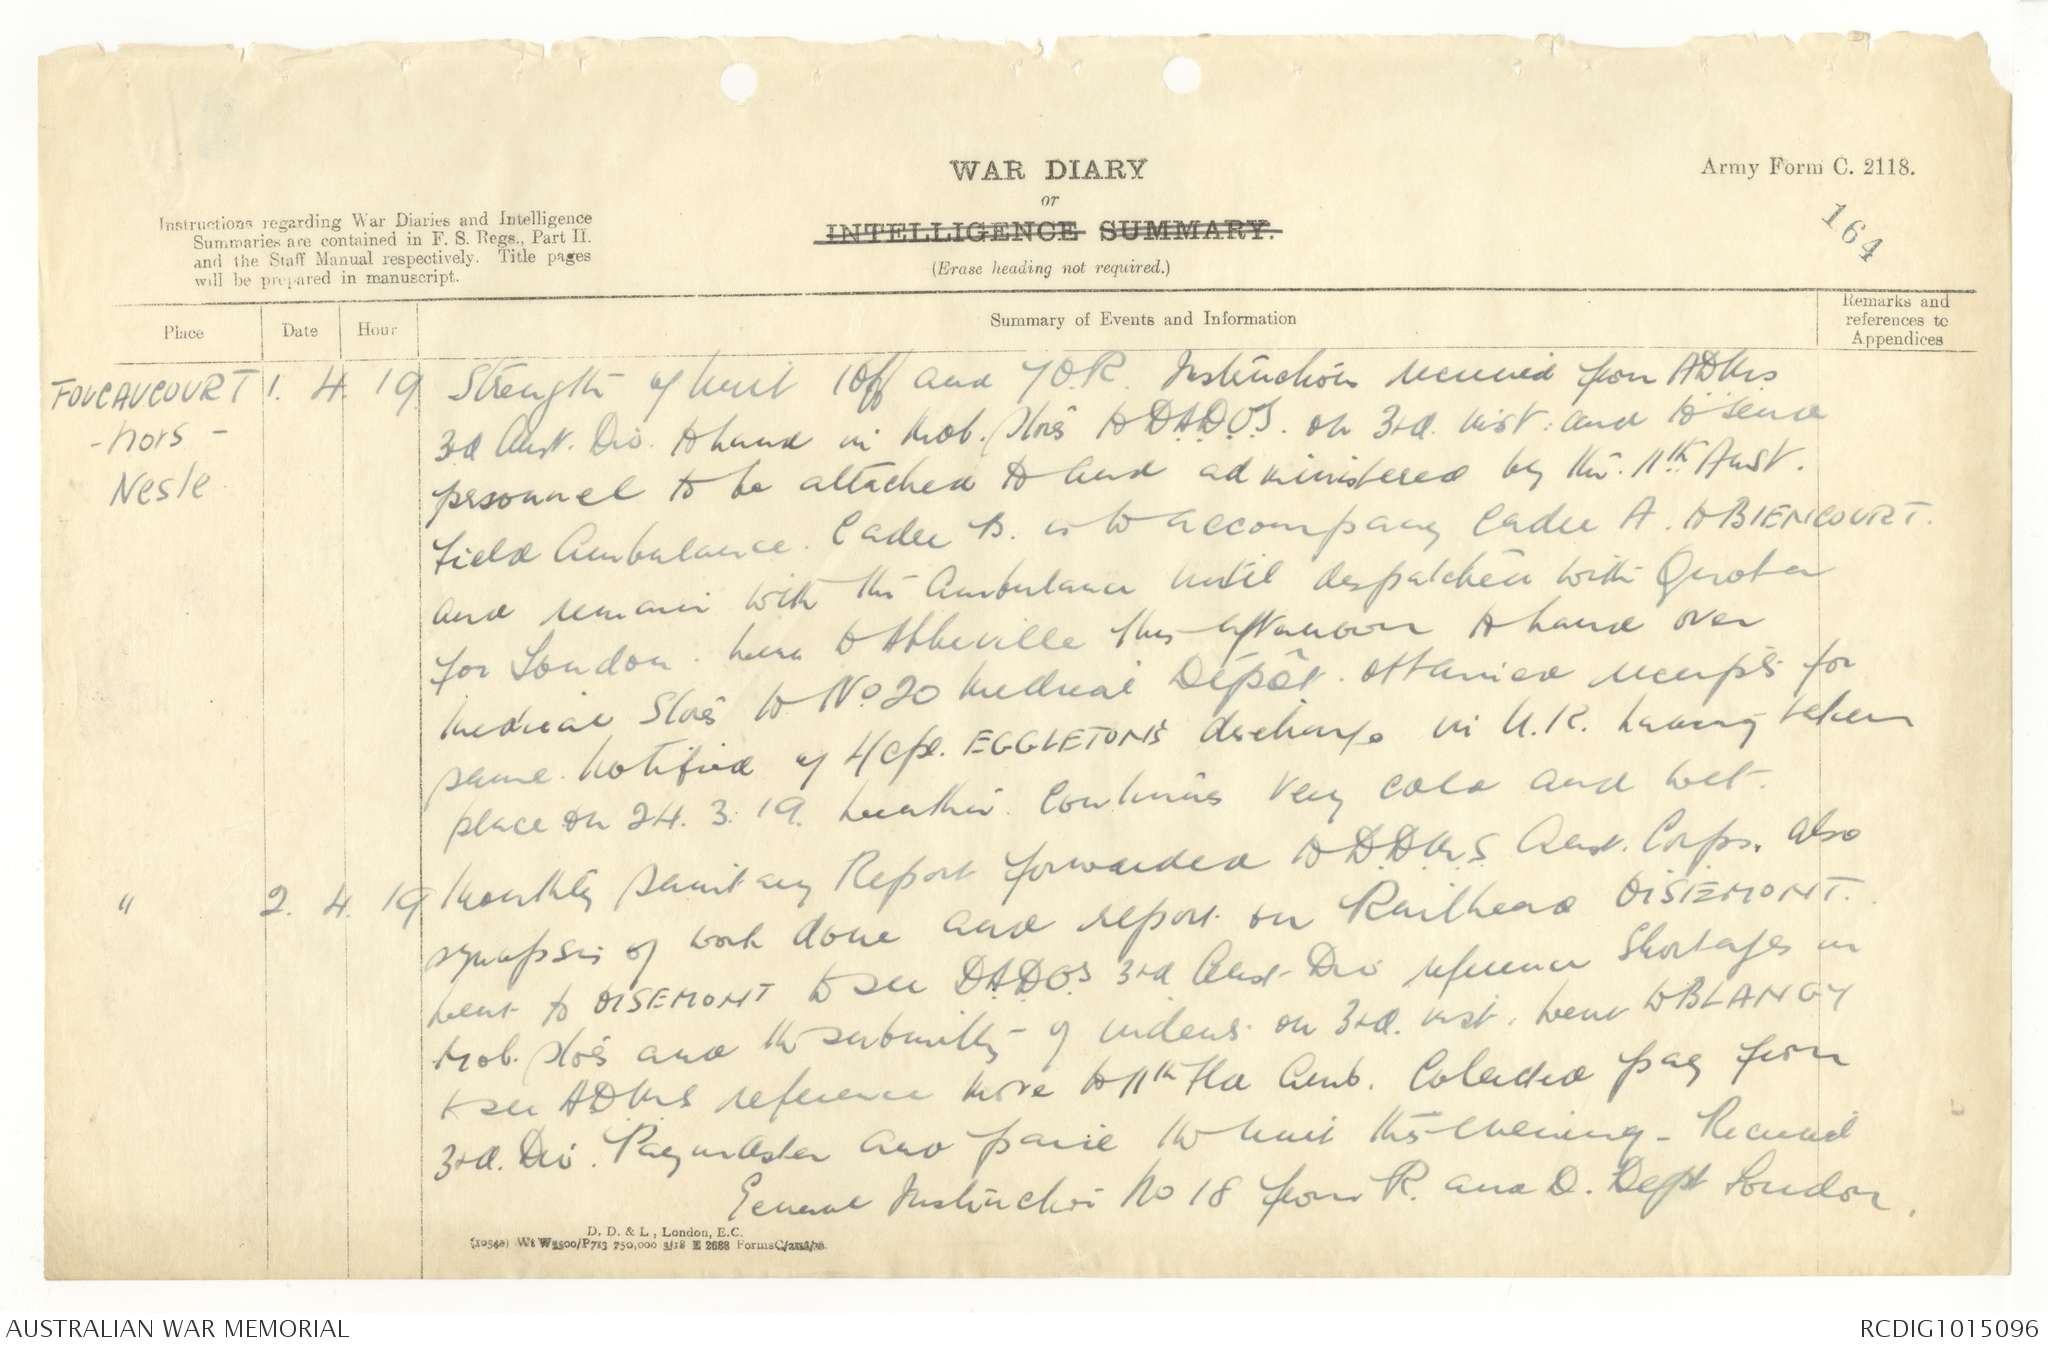 WAR DIARY
or
INTELLIGENCE SUMMARY.
(Erase heading not required.)
Army Form C. 2118.
164
Instructions regarding War Diaries and Intelligence
Summaries are contained in F. S. Regs., Part II.
and the Staff Manual respectively. Title pages
will be prepared in manuscript.
Place
Date
Hour
Summary of Events and Information
Remarks and
references to
Appendices
FOUCAUCOURT 1. 4. 19 Strength of Unit 1 Off and 7 O.R. Instruction received from ADMS
- hors - 3rd Aust. Div. to hand in Mob. Stores to D.A.D.O.S. on 3rd. inst. and to send
Nesle personnel to be attached to and administered by the 11th Aust.
Field Ambulance. Cadre B. is to accompany Cadre A. to BIENCOURT.
and remain with the Ambulance until despatched with Quota
for London. Went to Abbeville this afternoon to hand over
Medical Stores to No 20 Medical Dépôt. Obtained receipts for
same. Notified of L/Cpl. EGGLETON'S discharge in U.K. having taken
place on 24. 3. 19. Weather continues very cold and wet.
" 2. 4. 19 Monthly Sanitary Report forwarded to D.D.M.S. Aust. Corps. also
synopsis of work done and report on Railhead OISEMONT.
Went to OISEMONT to see D.A.D.O.S 3rd Aust Div reference shortages in
Mob. Stores and the submitting of indents on 3rd. inst. Went to BLANGY
to see ADMS reference move to 11th Fld Amb. Collected pay from
3rd. Div. Paymaster and paid the unit this evening - Received
General Instruction No 18 from R. and D. Dept London.
D. D. & L., London, E.C.
(10540) Wt W5500/P713 750,000 3/18 E 2688 Forms C/2118/
AUSTRALIAN WAR MEMORIAL
RCDIG1015096